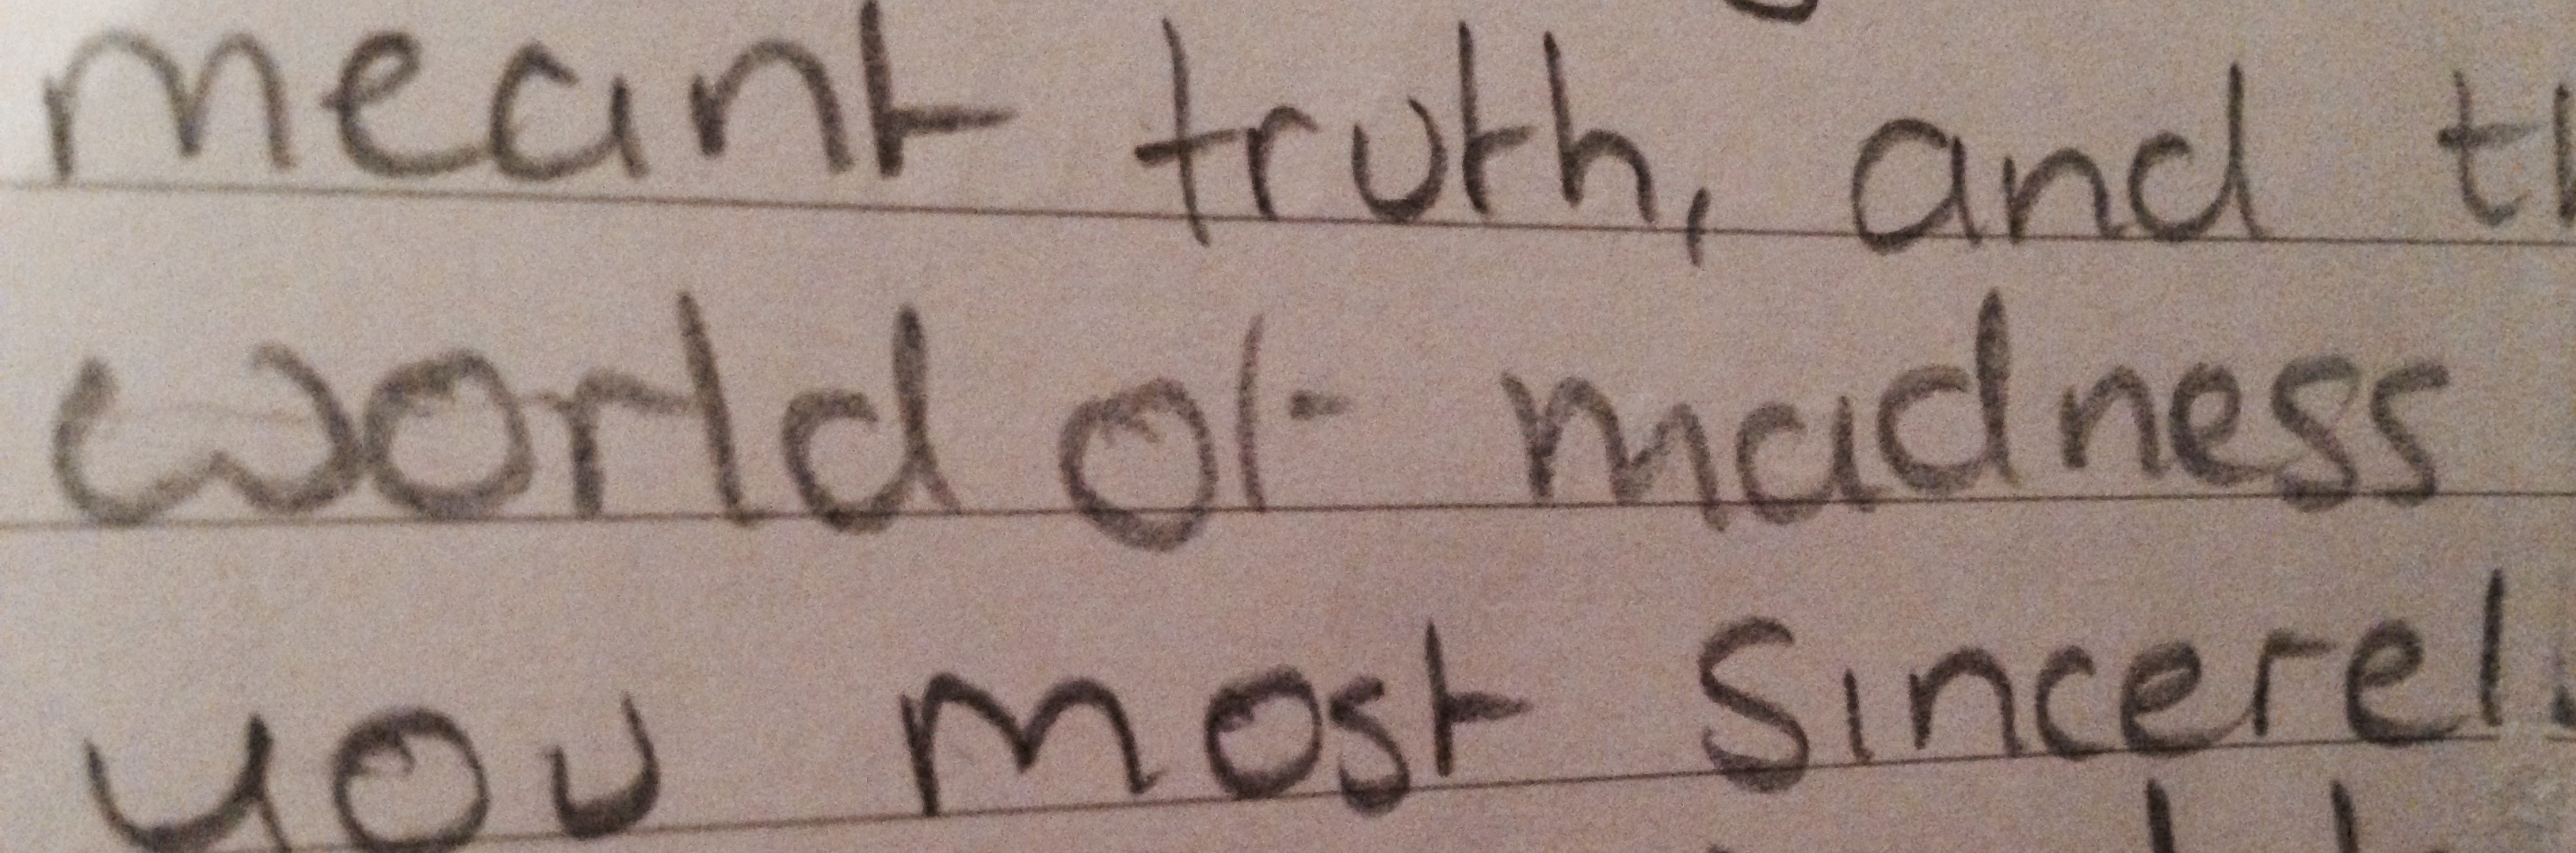 meant truth, and th
world of madness
you most sincerel